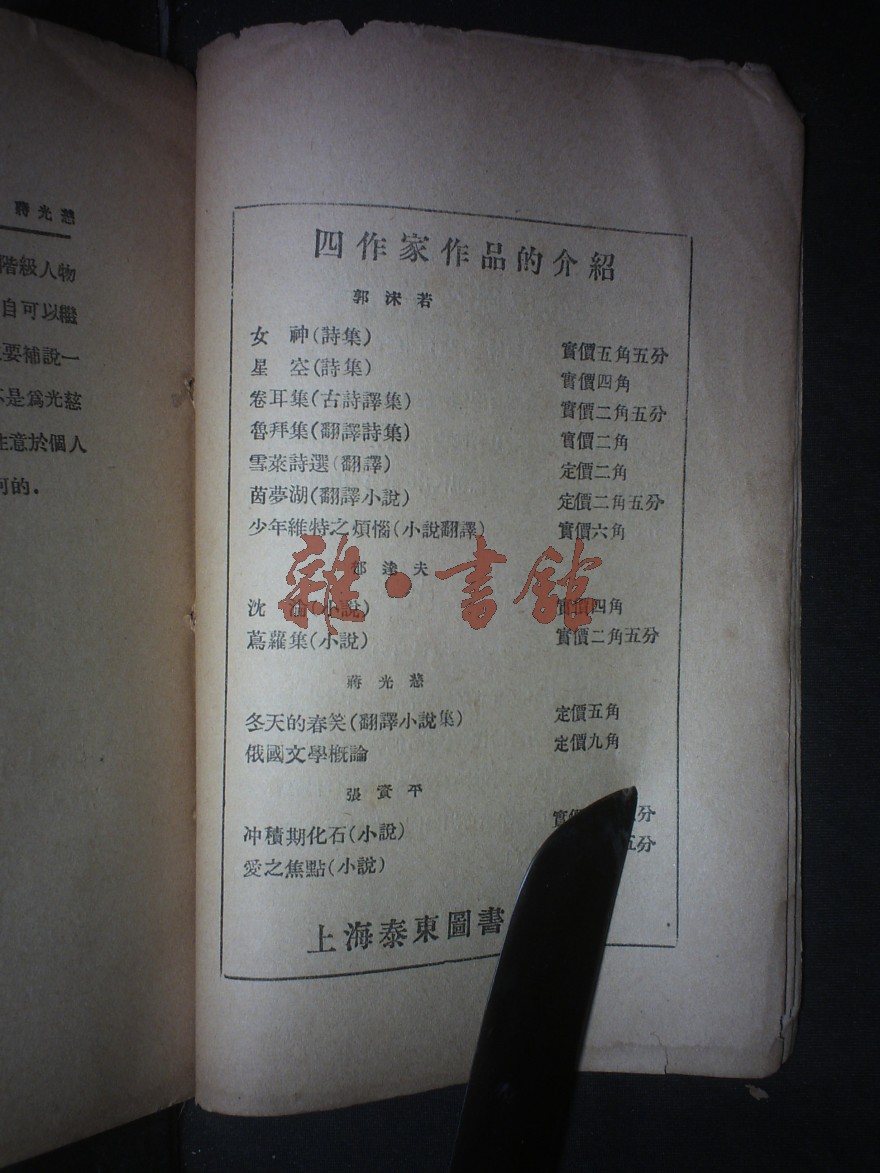 蔣光慈
階級人物
自可以繼
要補說一
不是爲光慈
注意於個人
何的.
四作家作品的介紹
郭沫若
女神(詩集) 實價五角五分
星空(詩集) 實價四角
卷耳集(古詩譯集) 實價二角五分
魯拜集(翻譯詩集) 實價二角
雪萊詩選(翻譯) 定價二角
茵夢湖(翻譯小說) 定價二角五分
少年維特之煩惱(小說翻譯) 實價六角
郁達夫
沈淪(小說) 實價四角
蔦蘿集(小說) 實價二角五分
蔣光慈
冬天的春笑(翻譯小說集) 定價五角
俄國文學概論 定價九角
張資平
冲積期化石(小說) 實 分
愛之焦點(小說) 五分
上海泰東圖書
雜·書館